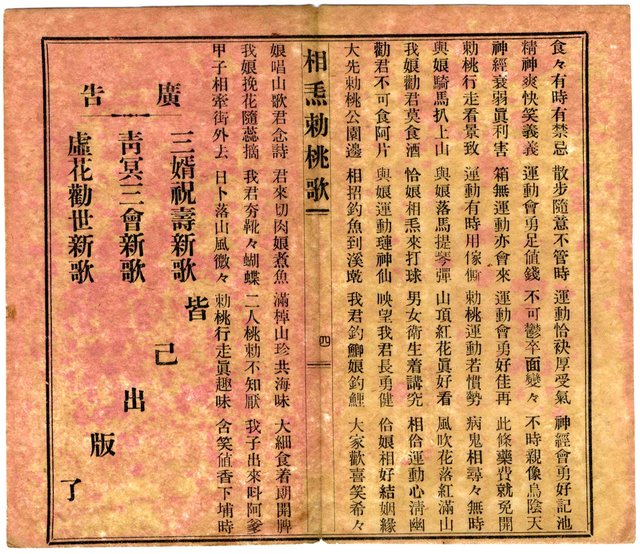 食々有時有禁忌 散步隨意不管時 運動恰袂厚受氣 神經會勇好記池
精神爽快笑義義 運動會勇足值錢 不可鬱卒面變々 不時親像烏陰天
神經衰弱眞利害 箱無運動亦會來 運動會勇好佳再 此條藥費就免開
勅桃行走看景致 運動有時用傢俬 勅桃運動若慣勢 病鬼相尋々無時
與娘騎馬扒上山 與娘落馬提琴彈 山頂紅花眞好看 風吹花落紅滿山
我娘勸君莫食酒 恰娘相𤆬來打球 男女衛生着講究 相佮運動心清幽
勸君不可食阿片 與娘運動璉神仙 映望我君長勇健 佮娘相好結姻緣
大先勅桃公園邊 相招釣魚到溪墘 我君釣鯽娘釣鯉 大家歡喜笑希々
相𤆬勅桃歌
四
娘唱山歌君念詩 君來切肉娘煮魚 滿棹山珍共海味 大細食着朗開脾
我娘挽花隨蕊摘 我君夯靴々蝴蝶 二人桃勅不知厭 我子出來呌阿爹
甲子相牽街外去 日卜落山風微々 勅桃行走眞趣味 含笑値香下埔時
廣告
三婿祝壽新歌
靑冥三會新歌
虛花勸世新歌
皆己出版了